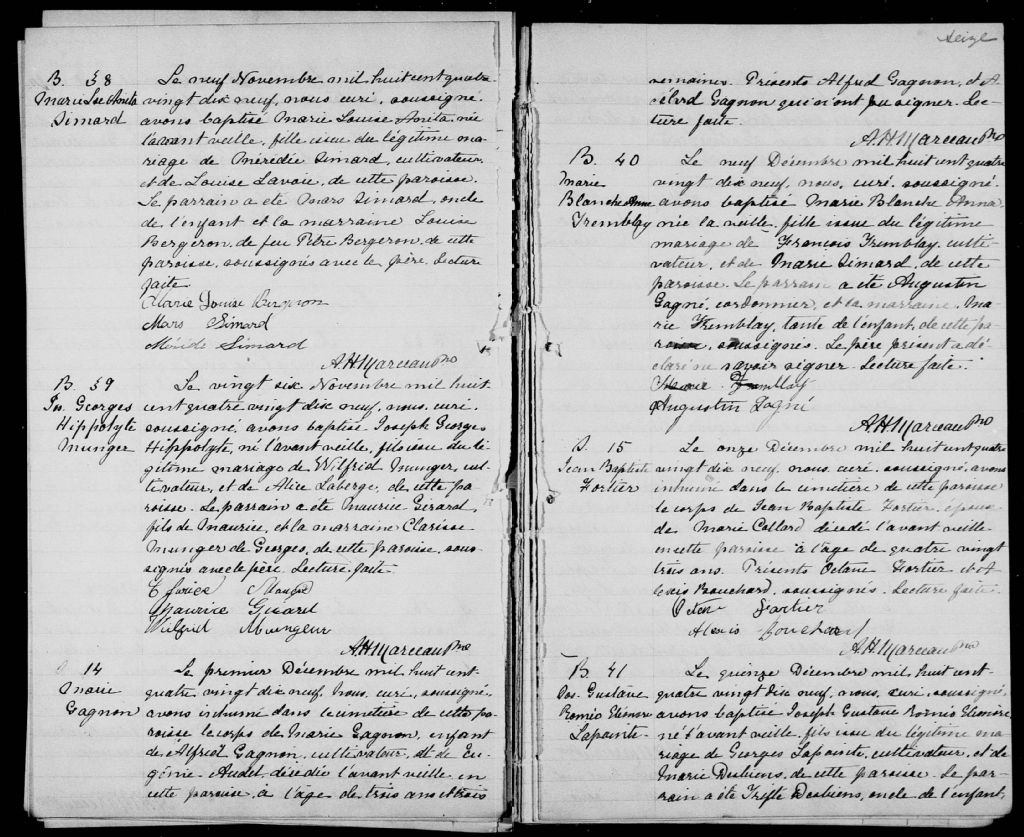 B. 38
Marie Lse Anita
Simard
Le neuf Novembre mil huit cent quatre
vingt dix neuf, nous, curé, soussigné,
avons baptisé Marie Louise Anita, née
l'avant veille, fille issue du légitime ma-
riage de Méridée Simard, cultivateur,
et de Louise Lavoie, de cette paroisse.
Le parrain a été Mars Simard, oncle
de l'enfant et la marraine Louise
Bergeron, de feu Pitre Bergeron, de cette
paroisse, soussignés avec le père. Lecture
faite
Marie Louise Bergeron
Mars Simard
Méride Simard
A.H. Marceau Ptre
B. 39
Jos. Georges
Hippolyte
Munger
Le vingt six Novembre mil huit
cent quatre vingt dix neuf, nous, curé,
soussigné, avons baptisé Joseph Georges
Hippolyte, né l'avant veille, fils issu du lé-
gitime mariage de Wilfrid Munger, cul-
tivateur, et de Alice Laberge, de cette pa-
roisse. Le parrain a été Maurice Girard,
fils de Maurice, et la marraine Clarisse
Munger de Georges, de cette paroisse, sous-
signés avec le père. Lecture faite
Maurice Girard
Wilfrid Mungeur
A.H. Marceau Ptre
14
Marie
Gagnon
Le premier Décembre mil huit cent-
quatre vingt dix neuf, nous, curé, soussigné,
avons inhumé dans le cimetière de cette pa-
roisse le corps de Marie Gagnon, enfant
de Alfred Gagnon, cultivateur, et de Eu-
génie Audet, décédée l'avant veille en
cette paroisse, à l'âge de trois ans et trois
seize
semaines. Présents Alfred Gagnon, et A-
délard Gagnon qui n'ont pu signer. Lec-
ture faite.
A.H. Marceau Ptre
B. 40
Marie
Blanche Anna
Tremblay
Le neuf Décembre mil huit cent quatre
vingt dix neuf, nous, curé, soussigné,
avons baptisé Marie Blanche Anna
née la veille, fille issue du légitime
mariage de François Tremblay, culti-
vateur, et de Marie Simard, de cette
paroisse. Le parrain a été Augustin
Gagné, cordonnier, et la marraine, Ma-
rie Tremblay, tante de l'enfant, de cette pa-
roisse, soussignés. Le père présent a dé-
claré ne savoir signer. Lecture faite.
Tremblay
Augustin Gagné
A.H. Marceau Ptre
S. 15
Jean Baptiste
Fortier
Le onze Décembre mil huit cent quatre
vingt dix neuf, nous, curé, soussigné, avons
inhumé dans le cimetière de cette paroisse
le corps de Jean Baptiste Fortier, époux
de Marie Collard décédé l'avant veille
en cette paroisse à l'âge de quatre vingt
trois ans. Présents Octave Fortier et A-
lexis Bouchard, soussignés. Lecture faite.
Fortier
Alexis Bouchard
A.H. Marceau Ptre
B. 41
Jos. Gustave
Roméo Eléonore
Lapointe
Le quinze Décembre mil huit cent-
quatre vingt dix neuf, nous, curé, soussigné,
avons baptisé Joseph Gustave Roméo Eléonore,
né l'avant veille, fils issu du légitime ma-
riage de Georges Lapointe, cultivateur, et de
Marie Desbiens, de cette paroisse. Le par-
rain a été Trefflé Desbiens, oncle de l'enfant,